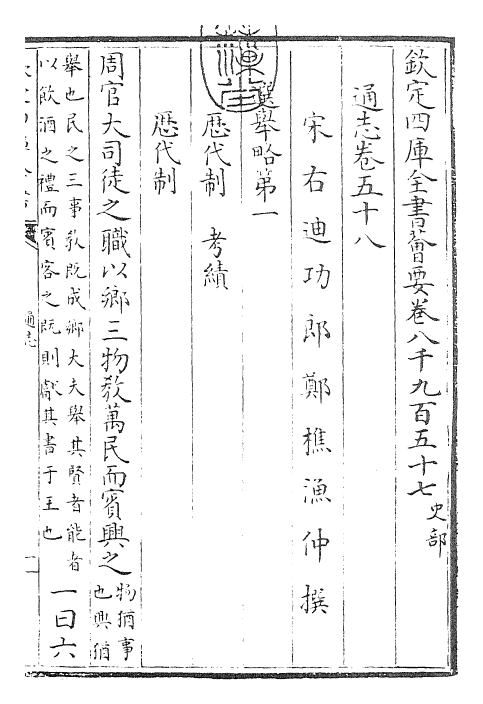 欽定四庫全書薈要卷八千九百五十七 史部
通志卷五十八
宋右迪功郎鄭樵漁仲撰
選舉略第一
歷代制 考績
歷代制
周官大司徒之職以鄉三物教萬民而賓興之 物猶事
也興猶
舉也民之三事教既成鄉大夫舉其賢者能者
以飲酒之禮而賓客之既則獻其書于王也
一曰六
通志
一